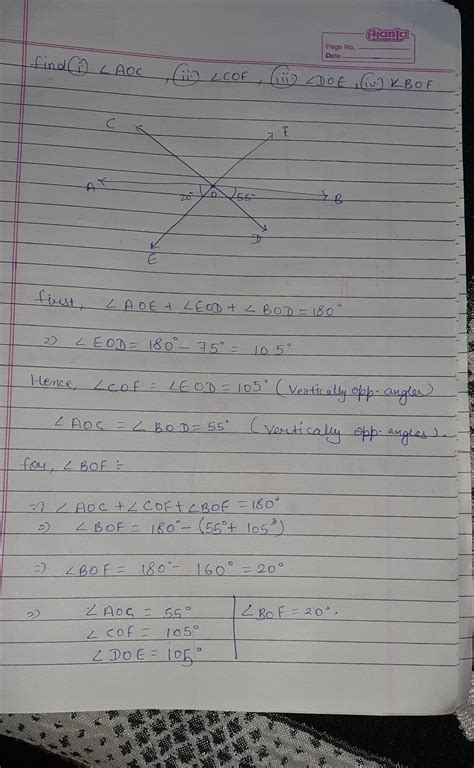 Ajanta
Page No.
Date
find (i) ∠AOC , (ii) ∠COF , (iii) ∠DOE, (iv) ∠BOF
C
F
A
20°
O
55°
B
D
E
first, ∠AOE + ∠EOD + ∠BOD = 180°
⇒ ∠EOD = 180° - 75° = 105°
Hence, ∠COF = ∠EOD = 105° (Vertically opp. angles)
∠AOC = ∠BOD = 55° (Vertically opp. angles).
for, ∠BOF :-
⇒ ∠AOC + ∠COF + ∠BOF = 180°
⇒ ∠BOF = 180° - (55° + 105°)
⇒ ∠BOF = 180° - 160° = 20°
⇒ ∠AOC = 55° ∠BOF = 20°.
∠COF = 105°
∠DOE = 105°